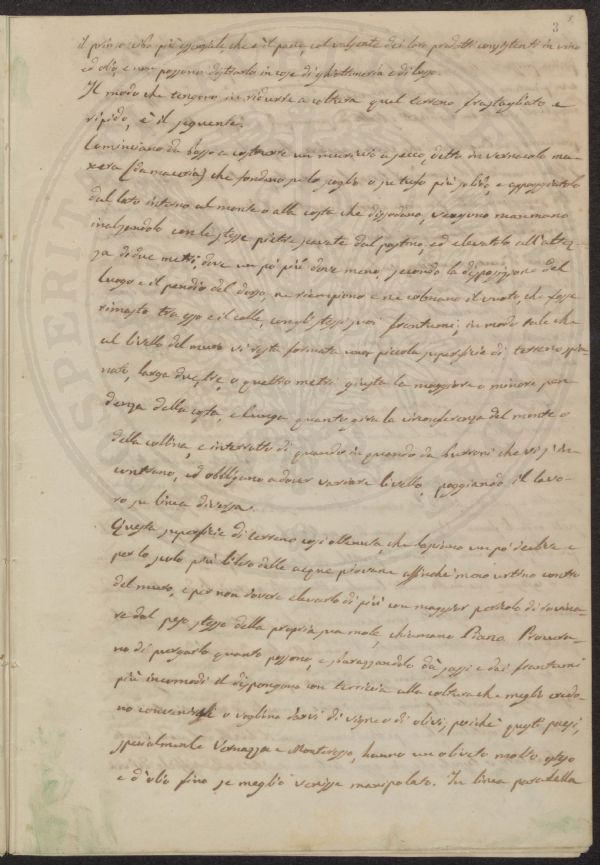 3
il primo cibo più essenziale che è il pane, col valsente dei loro prodotti consistenti in vino
ed olio, e non possono distrarlo in cose di ghiottoneria e di lusso.
Il modo che tengono in ridurre a coltura quel terreno frastagliato e
ripido, è il seguente.
Cominciano da basso a costruire un muricio a secco, detto in vernacolo ma-
xera (da maceria) che fondano su lo scoglio o su tufo più solido, e appoggiatolo
dal lato interno al monte o alla costa che dissodano, vengono man mano
inalzandolo con le stesse pietre scavate dal pastino, ed elevatolo all'altez-
za di due metri, dove un pò più dove meno, secondo la disposizione del
luogo e il pendio del dosso, ne riempiono e ne colmano il vuoto, che fosse
rimasto tra esso e il colle, con gli stessi suoi frantumi; in modo tale che
al livello del muro vi resta formata una piccola superficie di terreno spia-
nato, larga due, tre, o quattro metri giusta la maggiore o minore pen-
denza della costa, e lunga quanto gira la circonferenza del monte o
della collina, e interrotto di quando in quando da burroni che vi s'in-
contrano, ed obbligano a dover variare livello, poggiando il lavo-
ro su linea diversa.
Questa superficie di terreno così ottenuta, che lasciano un pò declive e
per lo scolo più libero delle acque piovane affinchè meno urtino contro
del muro, e per non dovere elevarlo di più con maggior pericolo di rovina-
re dal peso stesso della propria sua mole, chiamano Piana. Procura-
no di purgarlo quanto possono, e sbarazzandolo dà sassi e dai frantumi
più incomodi il dispongono con terriccio alla coltura che meglio credo-
no convenirsi o vogliono darvi di vigne o di olivi, poichè questi paesi,
specialmente Vernazza e Monterosso, hanno un oliveto molto esteso
e d'olio fino se meglio venisse manipolato. In linea parallella